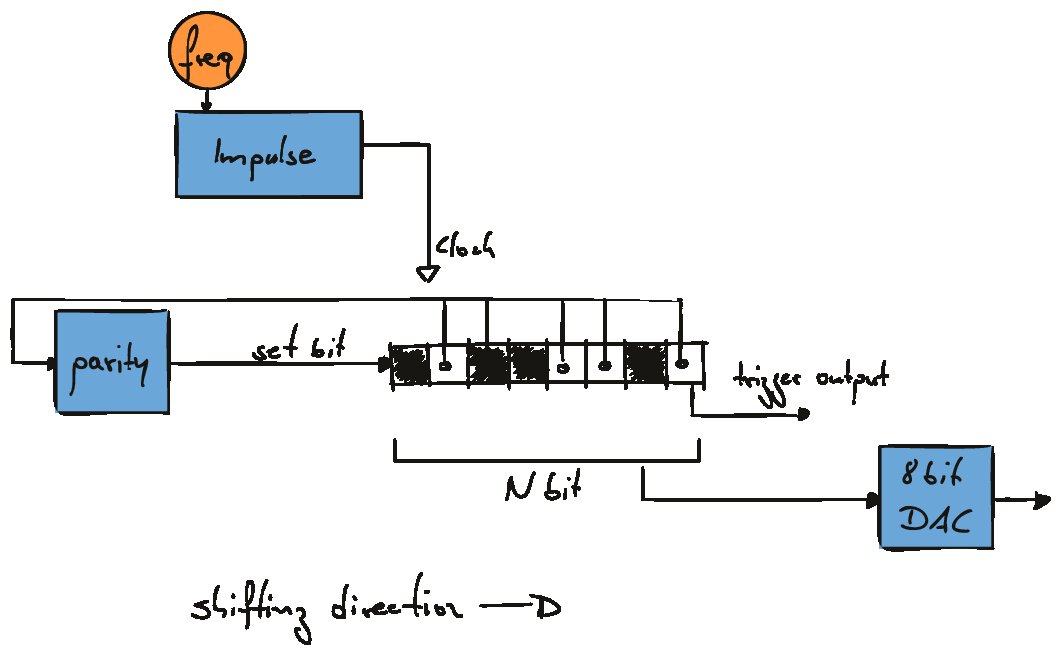 freq
Impulse
Clock
parity
set bit
trigger output
N bit
8 bit
DAC
shifting direction